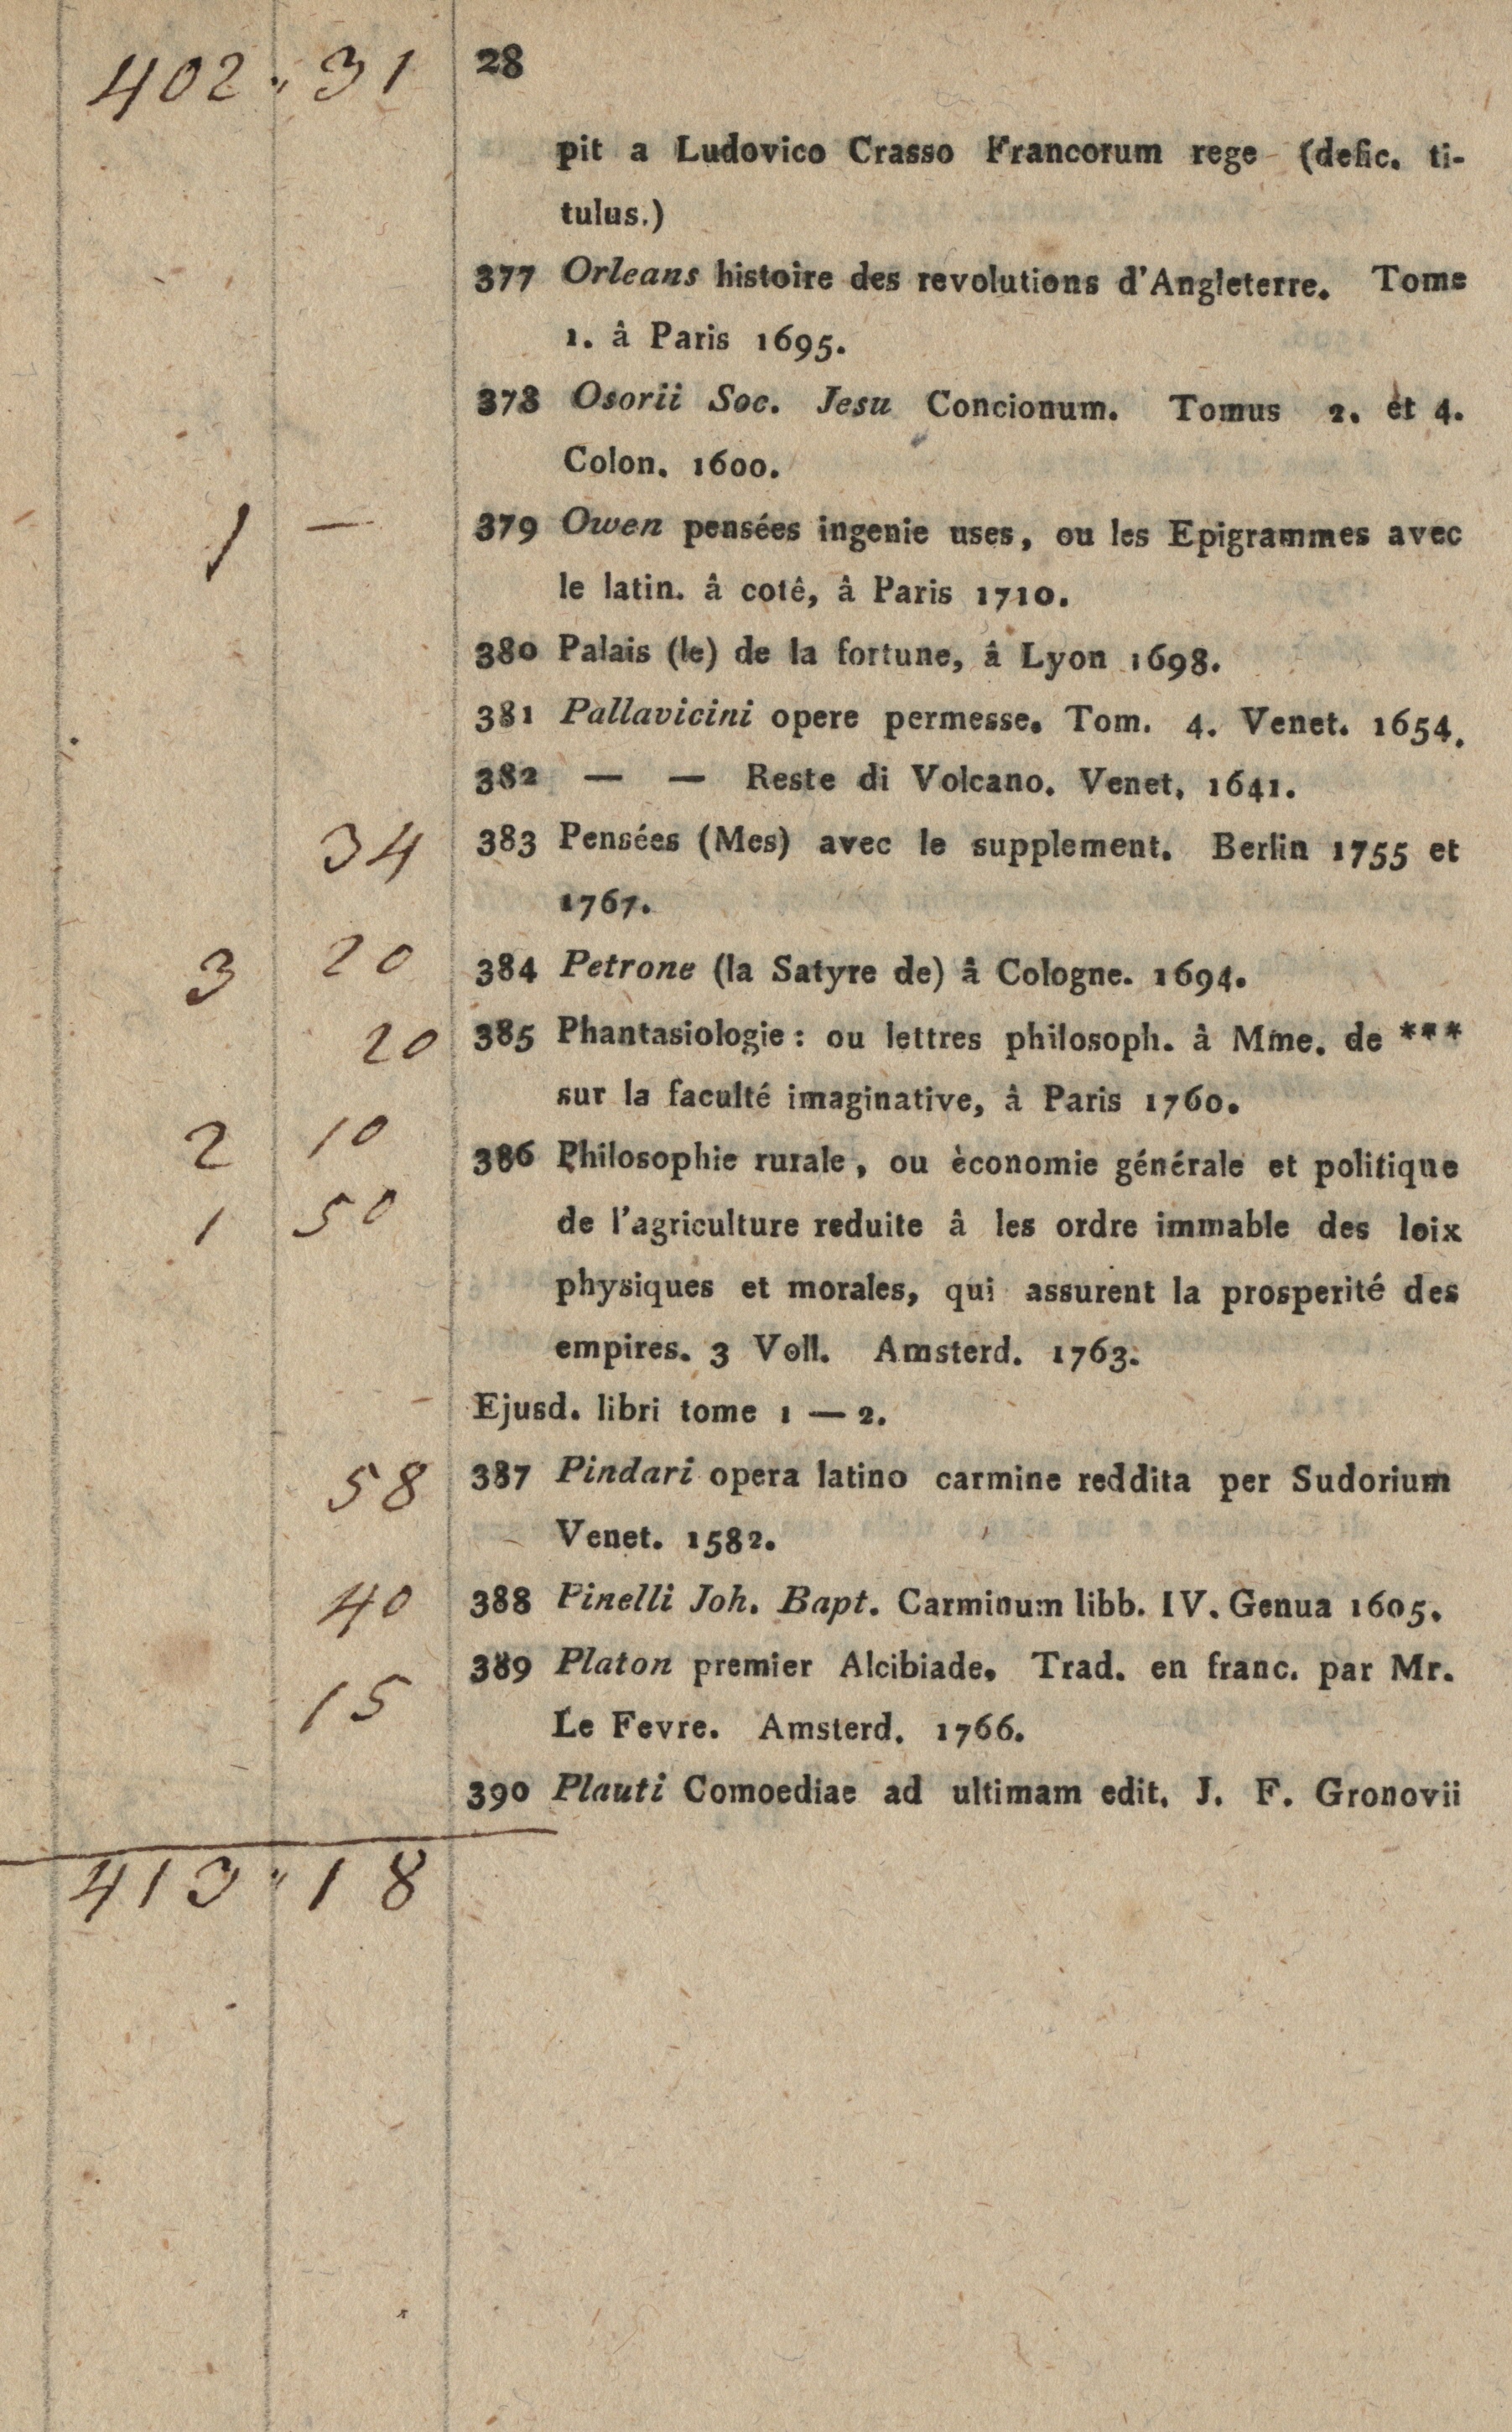 402 " 31 28
pit a Ludovico Crasso Francorum rege (defic. ti-
tulus.)
377 Orleans histoire des revolutions d'Angleterre. Tome
1. â Paris 1695.
378 Osorii Soc. Jesu Concionum. Tomus 2. et 4.
Colon. 1600.
1 — 379 Owen pensées ingenie uses, ou les Epigrammes avec
le latin. â cotê, â Paris 1710.
380 Palais (le) de la fortune, â Lyon 1698.
381 Pallavicini opere permesse. Tom. 4. Venet. 1654.
382 — — Reste di Volcano. Venet. 1641.
34 383 Pensées (Mes) avec le supplement. Berlin 1755 et
1767.
3 20 384 Petrone (la Satyre de) â Cologne. 1694.
20 385 Phantasiologie: ou lettres philosoph. à Mme. de ***
sur la faculté imaginative, à Paris 1760.
2 10 386 Philosophie rurale, ou èconomie générale et politique
1 50 de l'agriculture reduite â les ordre immable des loix
physiques et morales, qui assurent la prosperité des
empires. 3 Voll. Amsterd. 1763.
Ejusd. libri tome 1 — 2.
58 387 Pindari opera latino carmine reddita per Sudorium
Venet. 1582.
40 388 Pinelli Joh. Bapt. Carminum libb. IV. Genua 1605.
389 Platon premier Alcibiade. Trad. en franc. par Mr.
15 Le Fevre. Amsterd. 1766.
390 Plauti Comoediae ad ultimam edit. J. F. Gronovii
413 " 18